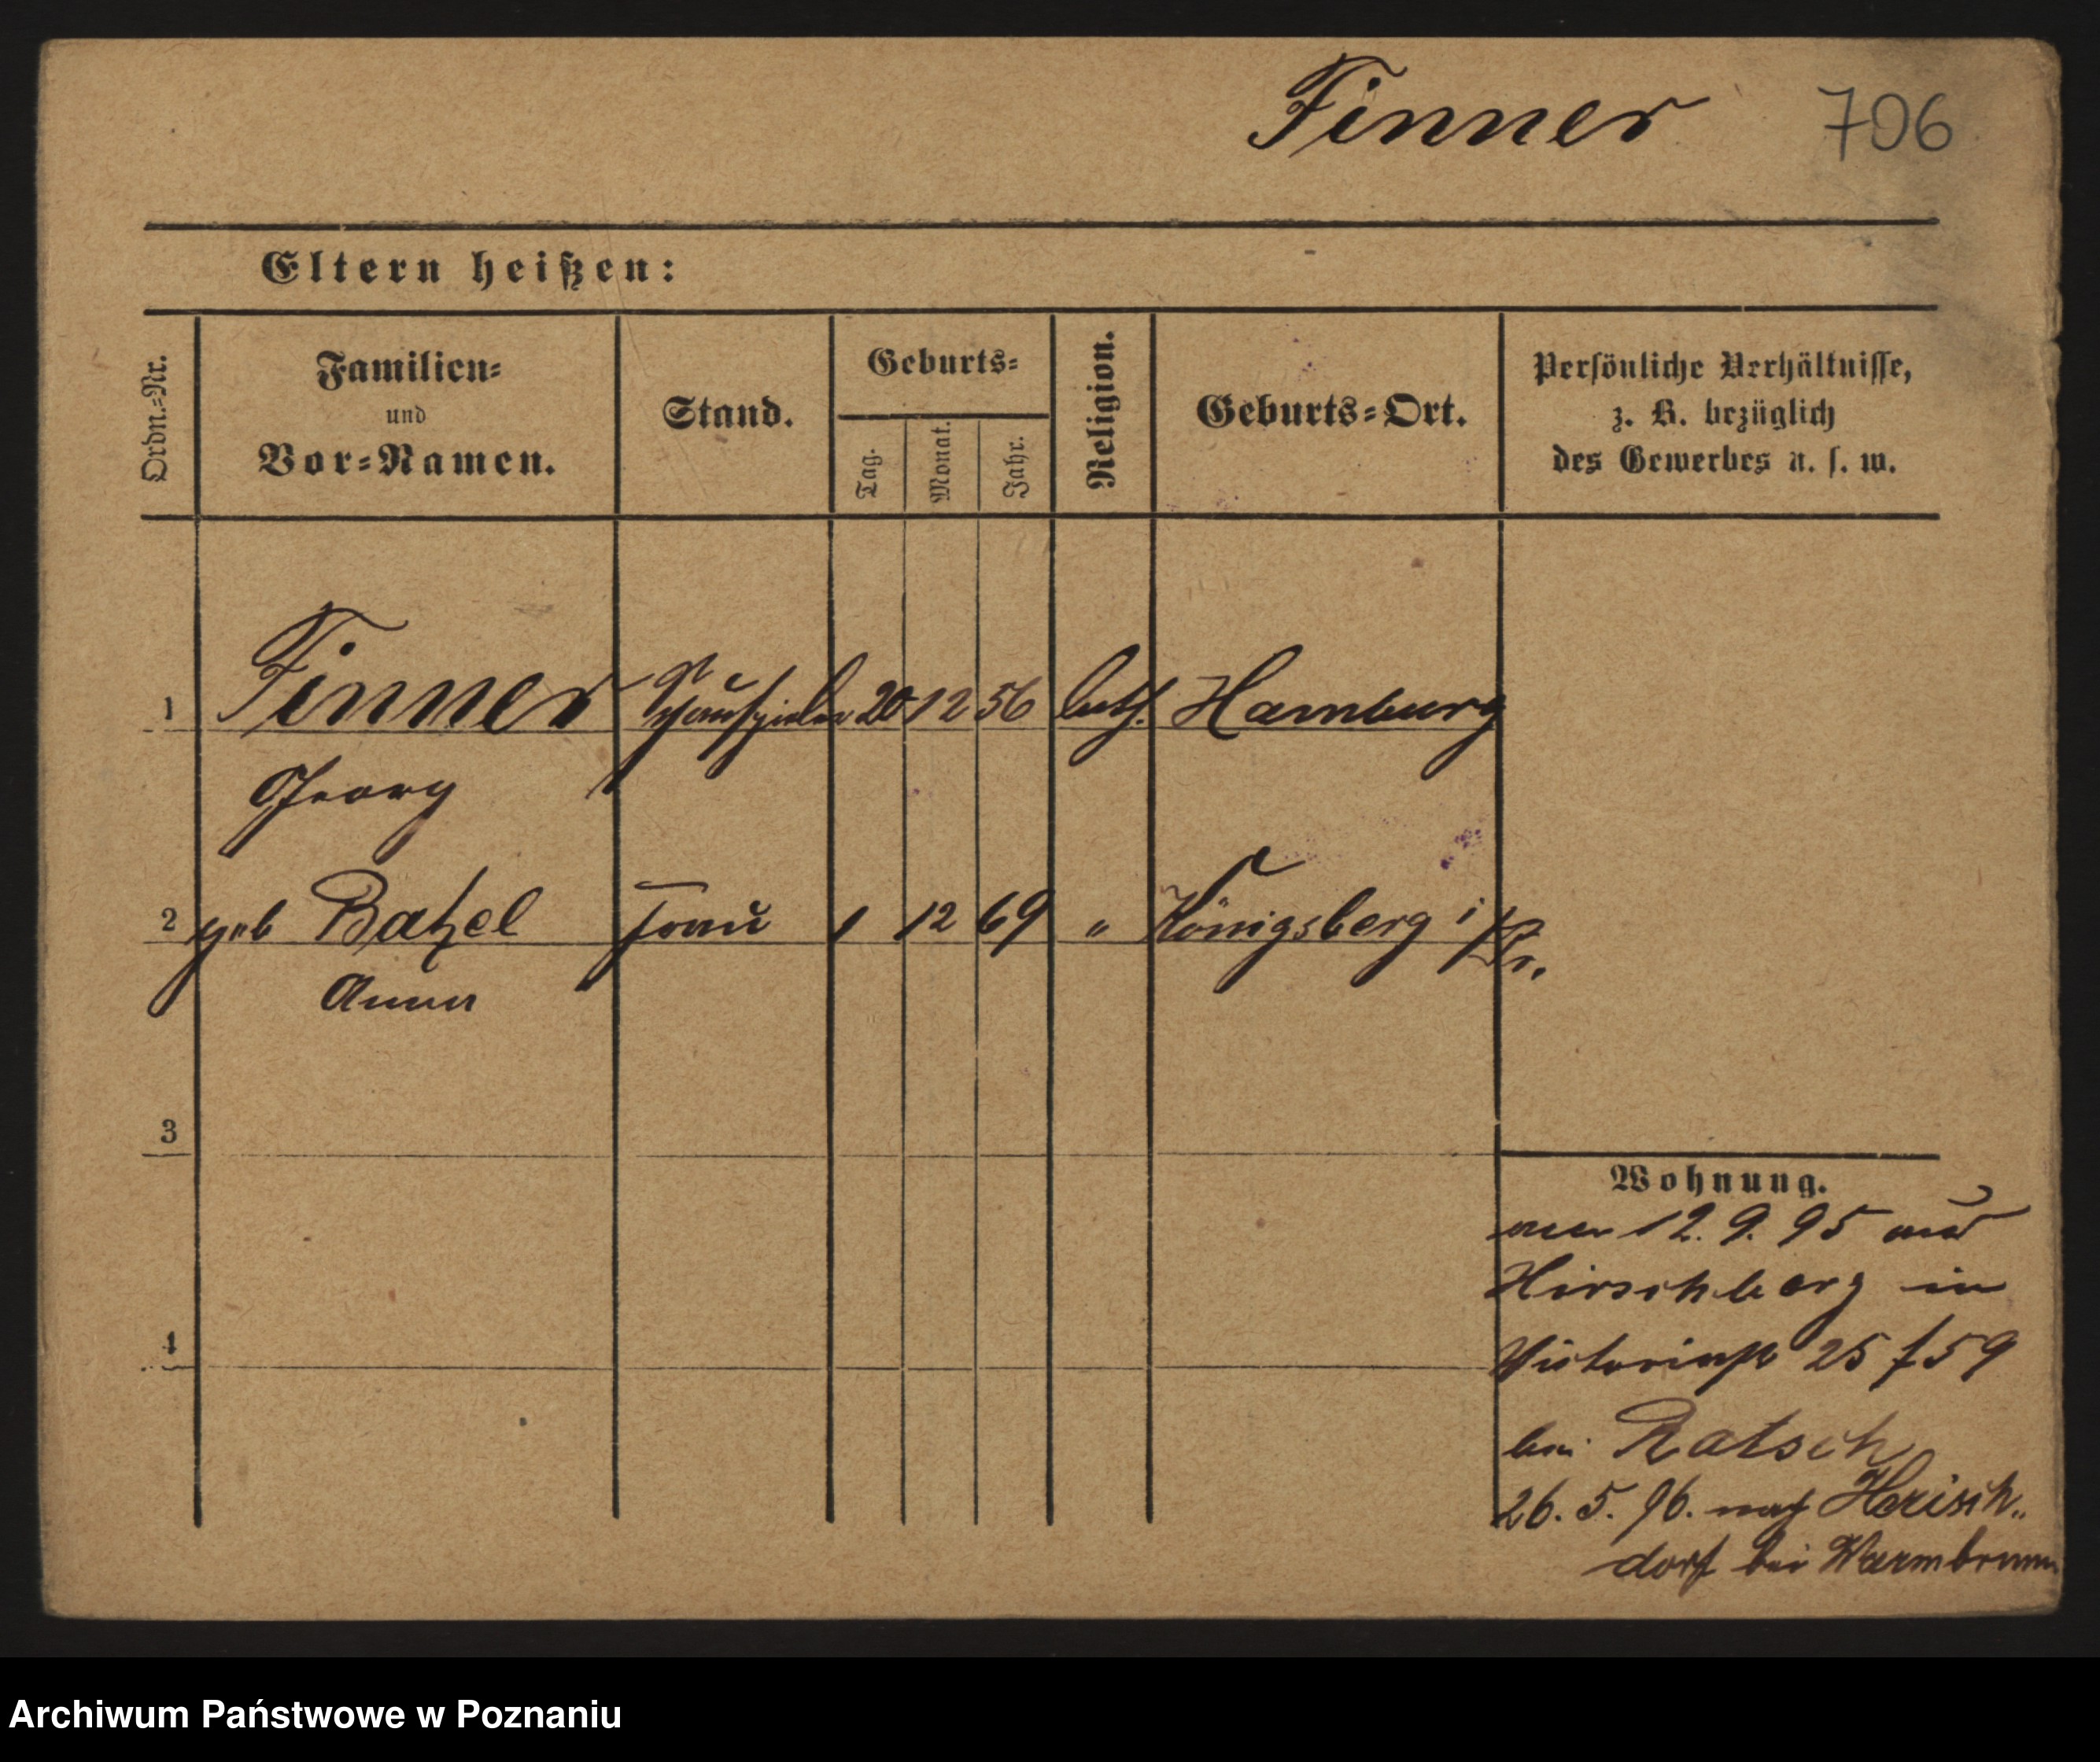 Finner 706
Eltern heißen:
Ordn.-Nr.
Familien-
und
Vor-Namen.
Stand.
Geburts-
Tag.
Monat.
Jahr.
Religion.
Geburts-Ort.
Persönliche Verhältnisse,
z. B. bezüglich
des Gewerbes u. s. w.
1 Finner Schauspieler 20 12 56 luth. Hamburg
Georg
2 geb Batzel Frau 1 12 69 " Königsberg i/Pr.
Anna
3
4
Wohnung.
12. 9. 95 aus
Hirschberg in
Victoriastr 25
bei Ratsch
26. 5. 96. nach Herisch-
dorf bei Warmbrunn
Archiwum Państwowe w Poznaniu